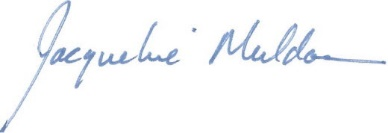 Jacqueline Muldoon